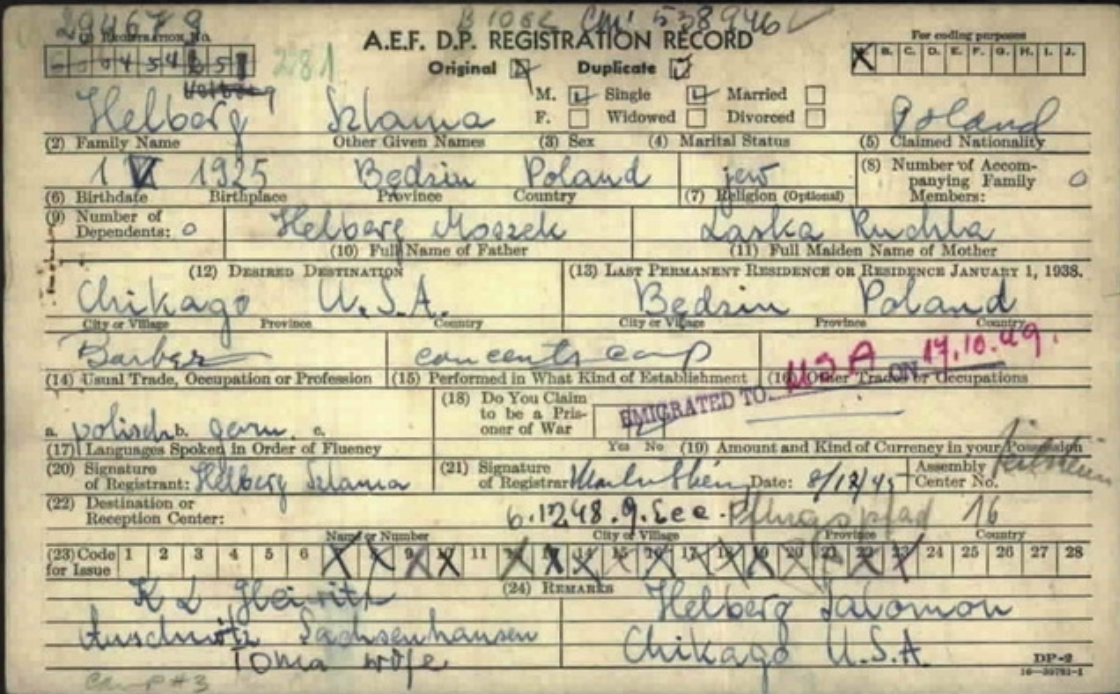 294679 B 1082 CM: 538946
(1) REGISTRATION NO.
A.E.F. D.P. REGISTRATION RECORD
For coding purposes
281
Original Duplicate
B. C. D. E. F. G. H. I. J.
Helberg Szlama
M. Single Married
F. Widowed Divorced
Poland
(2) Family Name Other Given Names (3) Sex (4) Marital Status (5) Claimed Nationality
1 V 1925 Będzin Poland jew
(8) Number of Accompanying Family Members: 0
(6) Birthdate Birthplace Province Country (7) Religion (Optional)
(9) Number of Dependents: 0
Helberg Moszek Laska Ruchla
(10) Full Name of Father (11) Full Maiden Name of Mother
(12) DESIRED DESTINATION (13) LAST PERMANENT RESIDENCE OR RESIDENCE JANUARY 1, 1938.
Chikago U.S.A. Będzin Poland
City or Village Province Country City or Village Province Country
Barber concentr camp
(14) Usual Trade, Occupation or Profession (15) Performed in What Kind of Establishment (16) Other Trades or Occupations
EMIGRATED TO USA ON 17.10.49.
a. polisch b. germ. c.
(18) Do You Claim to be a Prisoner of War
(17) Languages Spoken in Order of Fluency Yes No (19) Amount and Kind of Currency in your Possession
(20) Signature of Registrant: Helberg Szlama (21) Signature of Registrar Date: 8/12/45 Assembly Center No.
(22) Destination or Reception Center:
6.1248.9. 16
Name or Number City or Village Province Country
(23) Code for Issue 1 2 3 4 5 6 9 10 11 14 15 16 17 18 19 20 21 22 23 24 25 26 27 28
(24) REMARKS
K L Gleiwitz Helberg Salomon
Auschwitz Sachsenhausen Chikago U.S.A.
Tonia wife
DP-2
Camp #3
16—39781-1